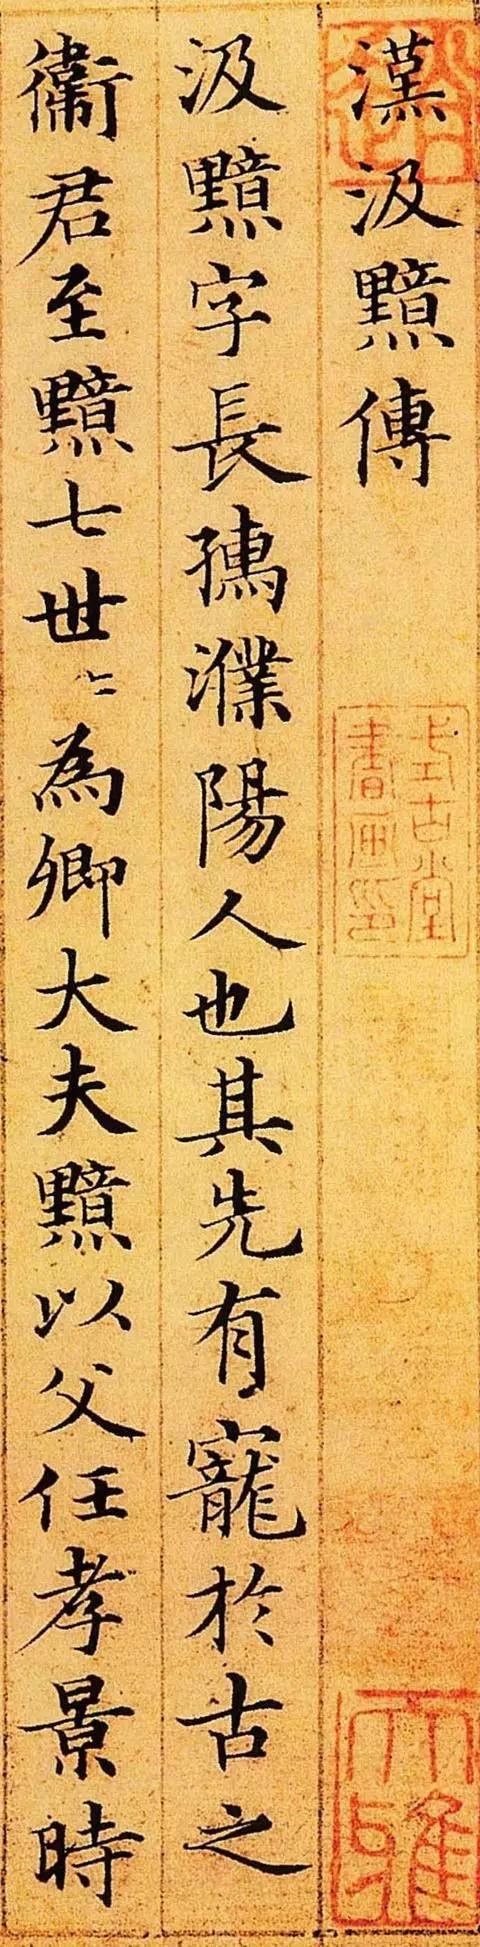 漢汲黯傳
式古堂
書畫印
大雅
汲黯字長孺濮陽人也其先有寵於古之
衛君至黯七世〻為卿大夫黯以父任孝景時